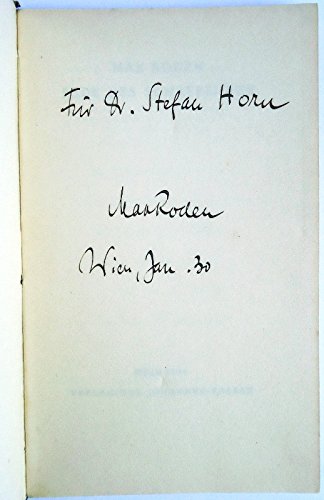 Für Dr. Stefan Horn
Max Roden
Wien, Jan. 30
MAX RODEN